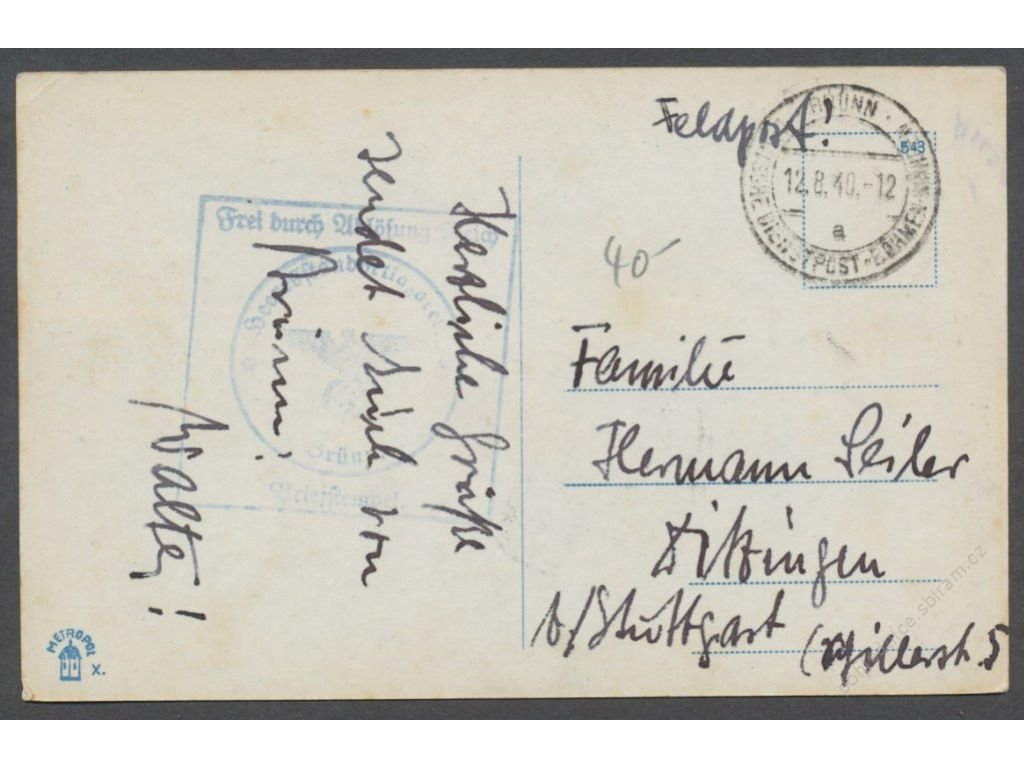 Feldpost!
BRÜNN
DEUTSCHE DIENSTPOST-BÖHMEN-MÄHREN
12.8.40.-12
a
543
40-
Frei durch Ablösung Reich
Heeresstandortlazarett
Brünn
Briefstempel
Herzliche Grüße
sendet Euch von
Brünn!
Walter!
Familie
Hermann Seiler
Ditzingen
b/Stuttgart (Schillerstr. 5
METROPOL
X.
sbiram.cz